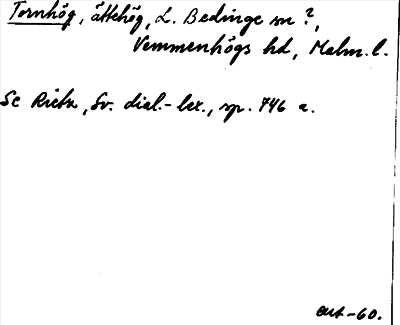 Tornhög, ättehög, L. Bedinge sn?,
Vemmenhögs hd, Malm. l.
Se Rietz, Sv. dial.-lex., sp. 746 a.
avt-60.